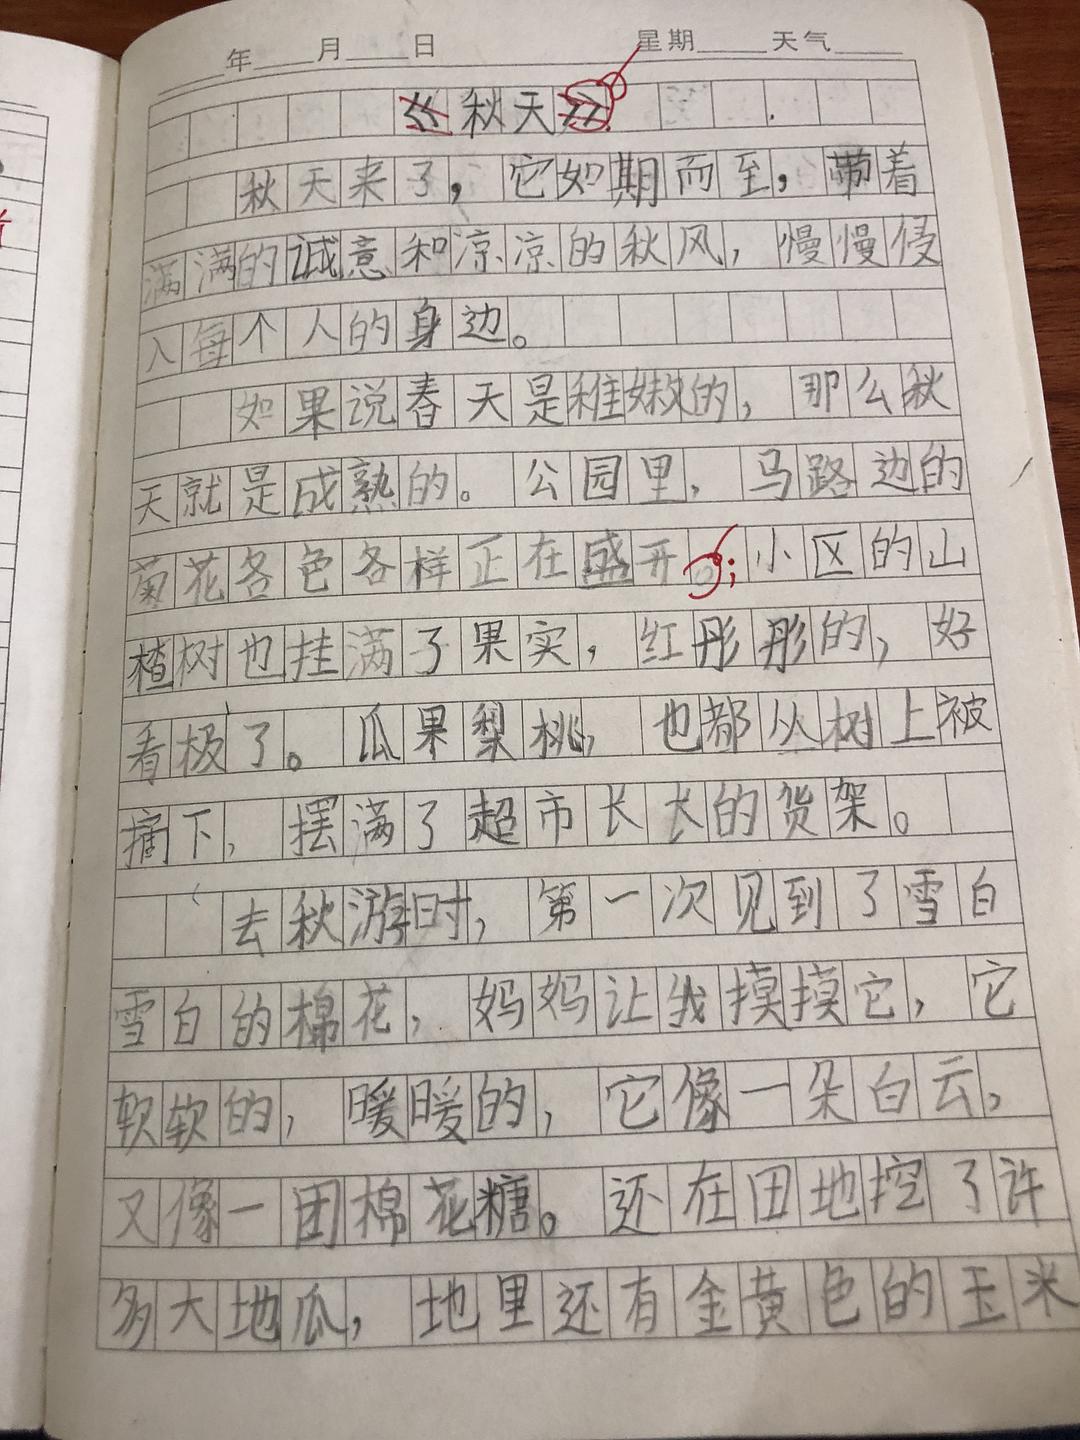 年 月 日 星期 天气
《秋天》
秋天来了，它如期而至，带着
满满的诚意和凉凉的秋风，慢慢侵
入每个人的身边。
如果说春天是稚嫩的，那么秋
天就是成熟的。公园里，马路边的
菊花各色各样正在盛开。；小区的山
楂树也挂满了果实，红彤彤的，好
看极了。瓜果梨桃，也都从树上被
摘下，摆满了超市长长的货架。
去秋游时，第一次见到了雪白
雪白的棉花，妈妈让我摸摸它，它
软软的，暖暖的，它像一朵白云，
又像一团棉花糖。还在田地挖了许
多大地瓜，地里还有金黄色的玉米